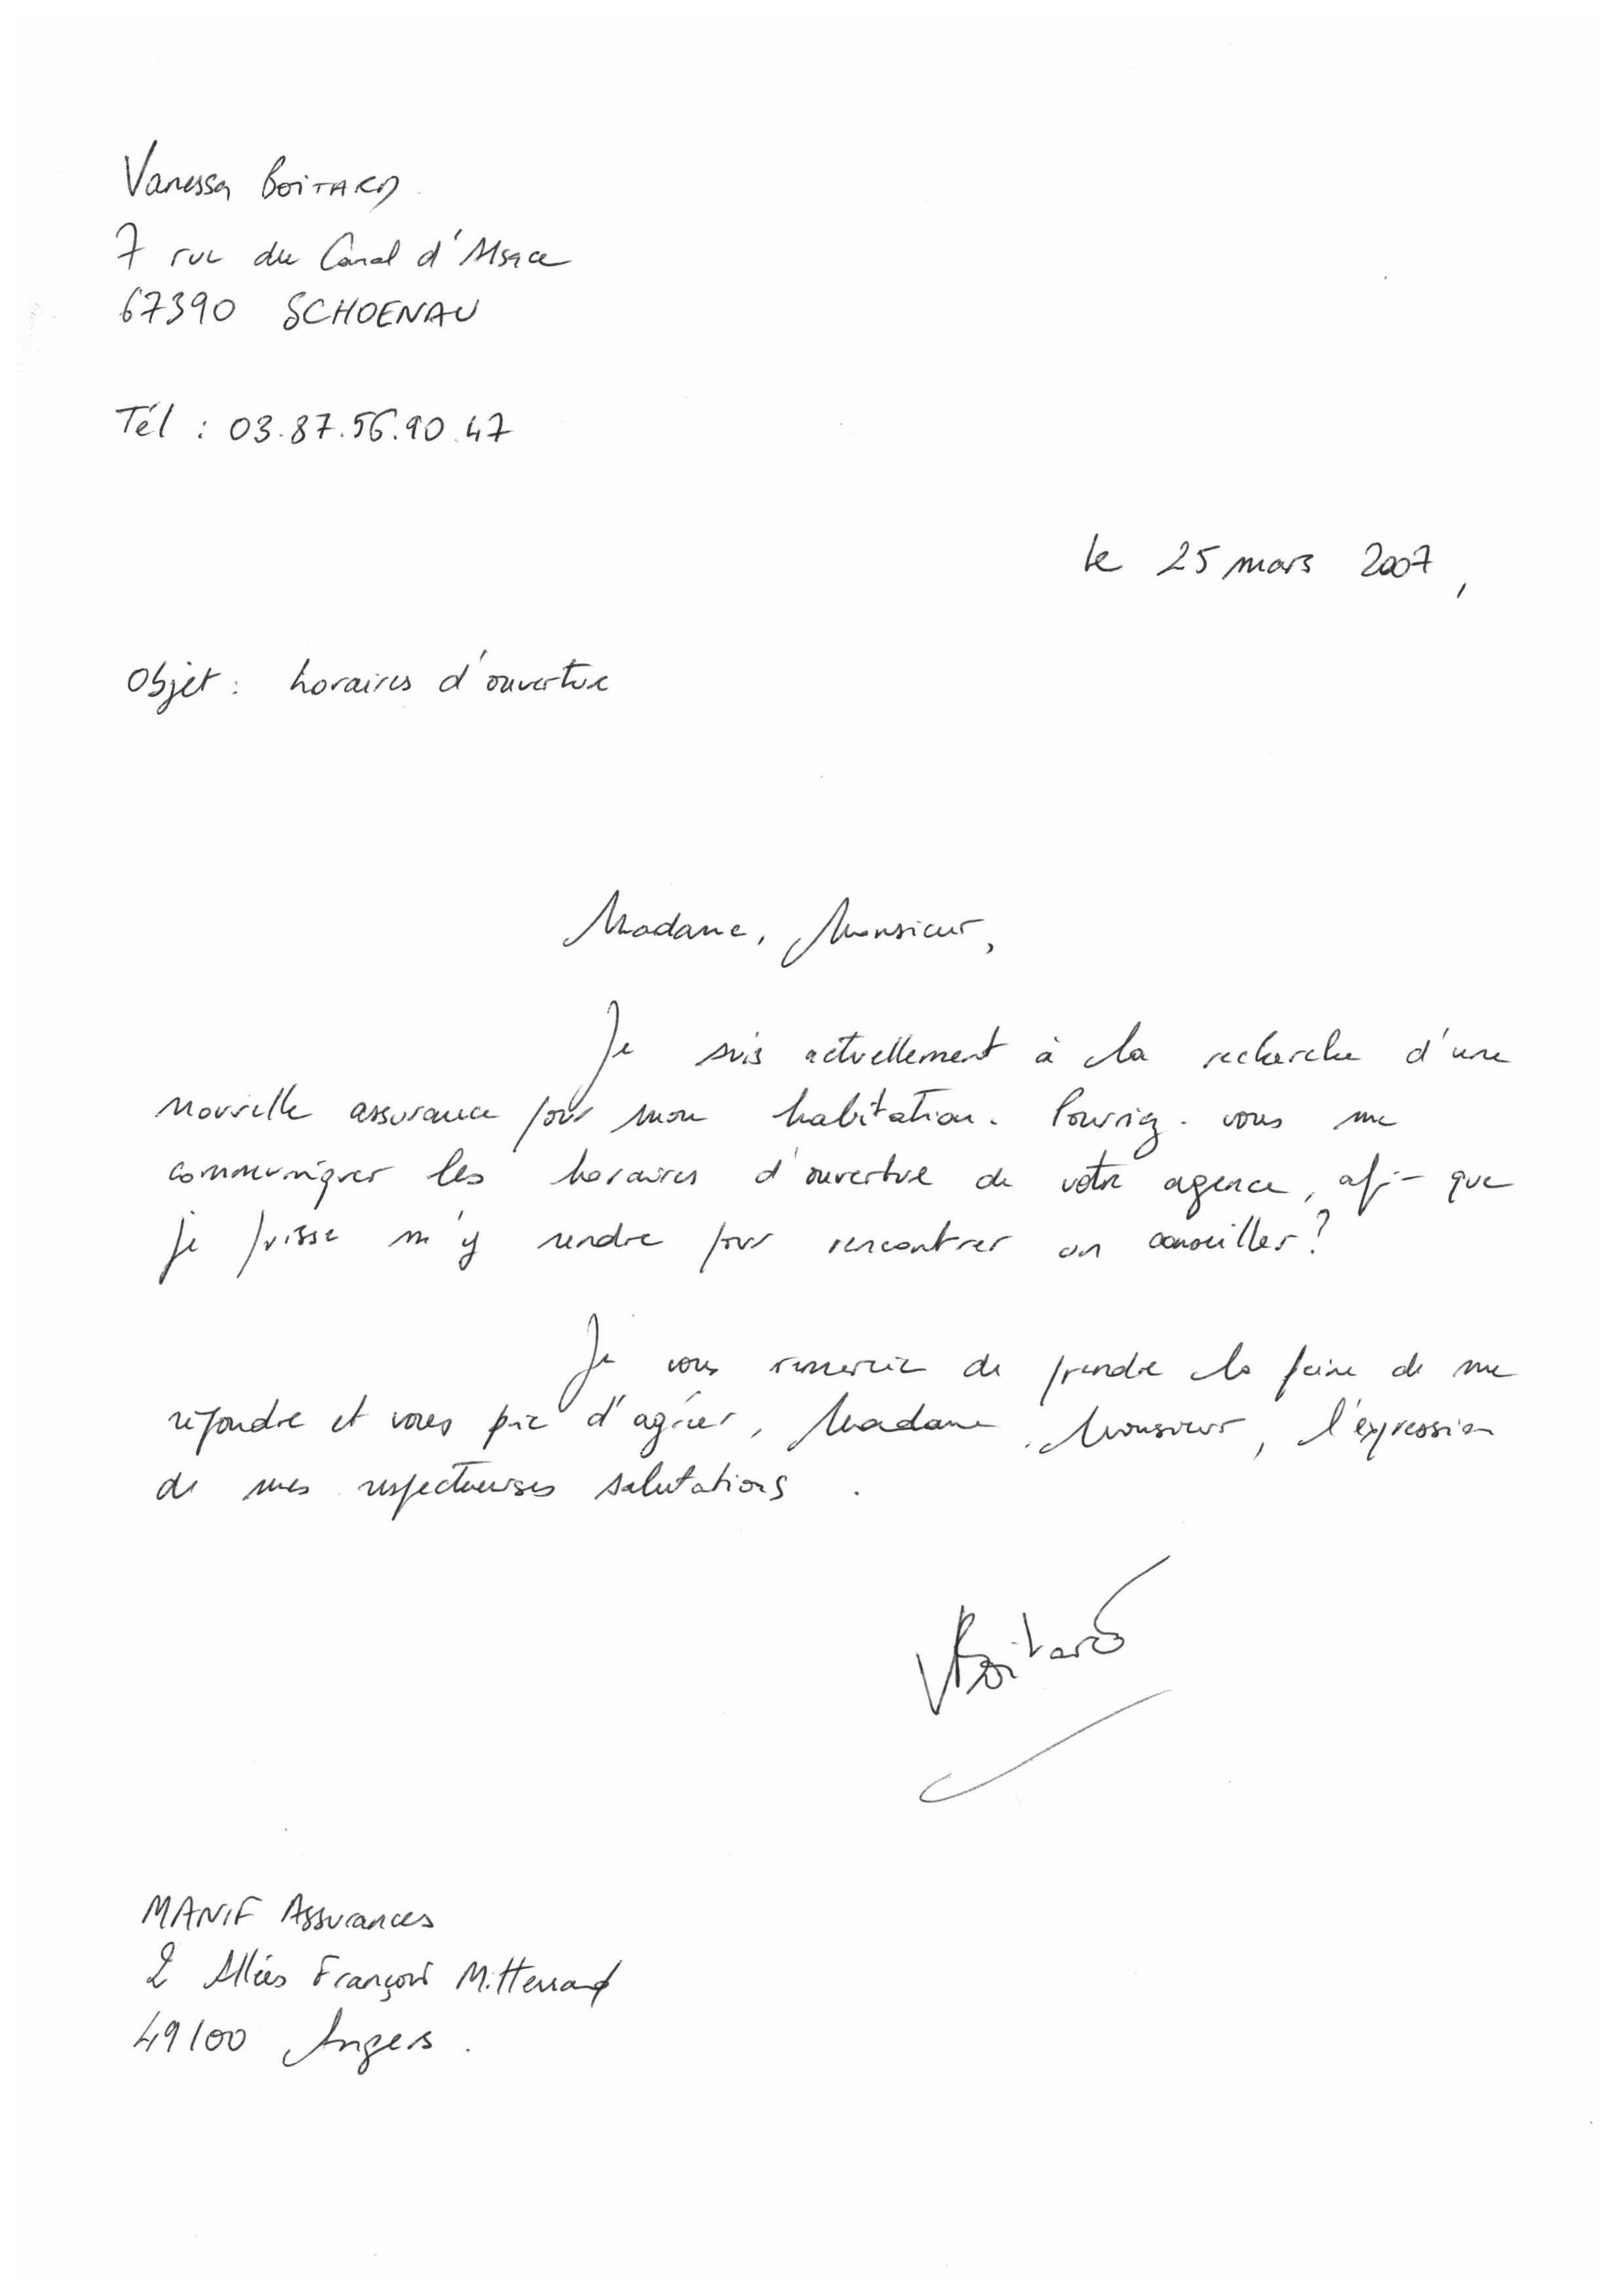 Vanessa BOITARD
7 rue du Canal d'Alsace
67390 SCHOENAU
Tél : 03.87.56.90.47
le 25 mars 2007,
Objet : horaires d'ouverture
Madame, Monsieur,
Je suis actuellement à la recherche d'une
nouvelle assurance pour mon habitation. Pouvriez-vous me
communiquer les horaires d'ouverture de votre agence, afin que
je puisse m'y rendre pour rencontrer un conseiller ?
Je vous remercie de prendre la peine de me
répondre et vous prie d'agréer, Madame, Monsieur, l'expression
de mes respectueuses salutations.
VBoitard
MANIF Assurances
2 Allées François Mitterrand
49100 Angers.